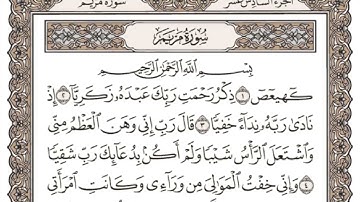 سُورَةُ مَرْيَم الجزء السادس عشر
سُورَةُ مَرْيَم
بِسْمِ اللَّهِ الرَّحْمَٰنِ الرَّحِيمِ
كٓهيعٓصٓ ١ ذِكْرُ رَحْمَتِ رَبِّكَ عَبْدَهُۥ زَكَرِيَّآ ٢ إِذْ
نَادَىٰ رَبَّهُۥ نِدَآءً خَفِيًّا ٣ قَالَ رَبِّ إِنِّي وَهَنَ ٱلْعَظْمُ مِنِّي
وَٱشْتَعَلَ ٱلرَّأْسُ شَيْبًا وَلَمْ أَكُنۢ بِدُعَآئِكَ رَبِّ شَقِيًّا ٤
وَإِنِّي خِفْتُ ٱلْمَوَٰلِيَ مِن وَرَآءِي وَكَانَتِ ٱمْرَأَتِي